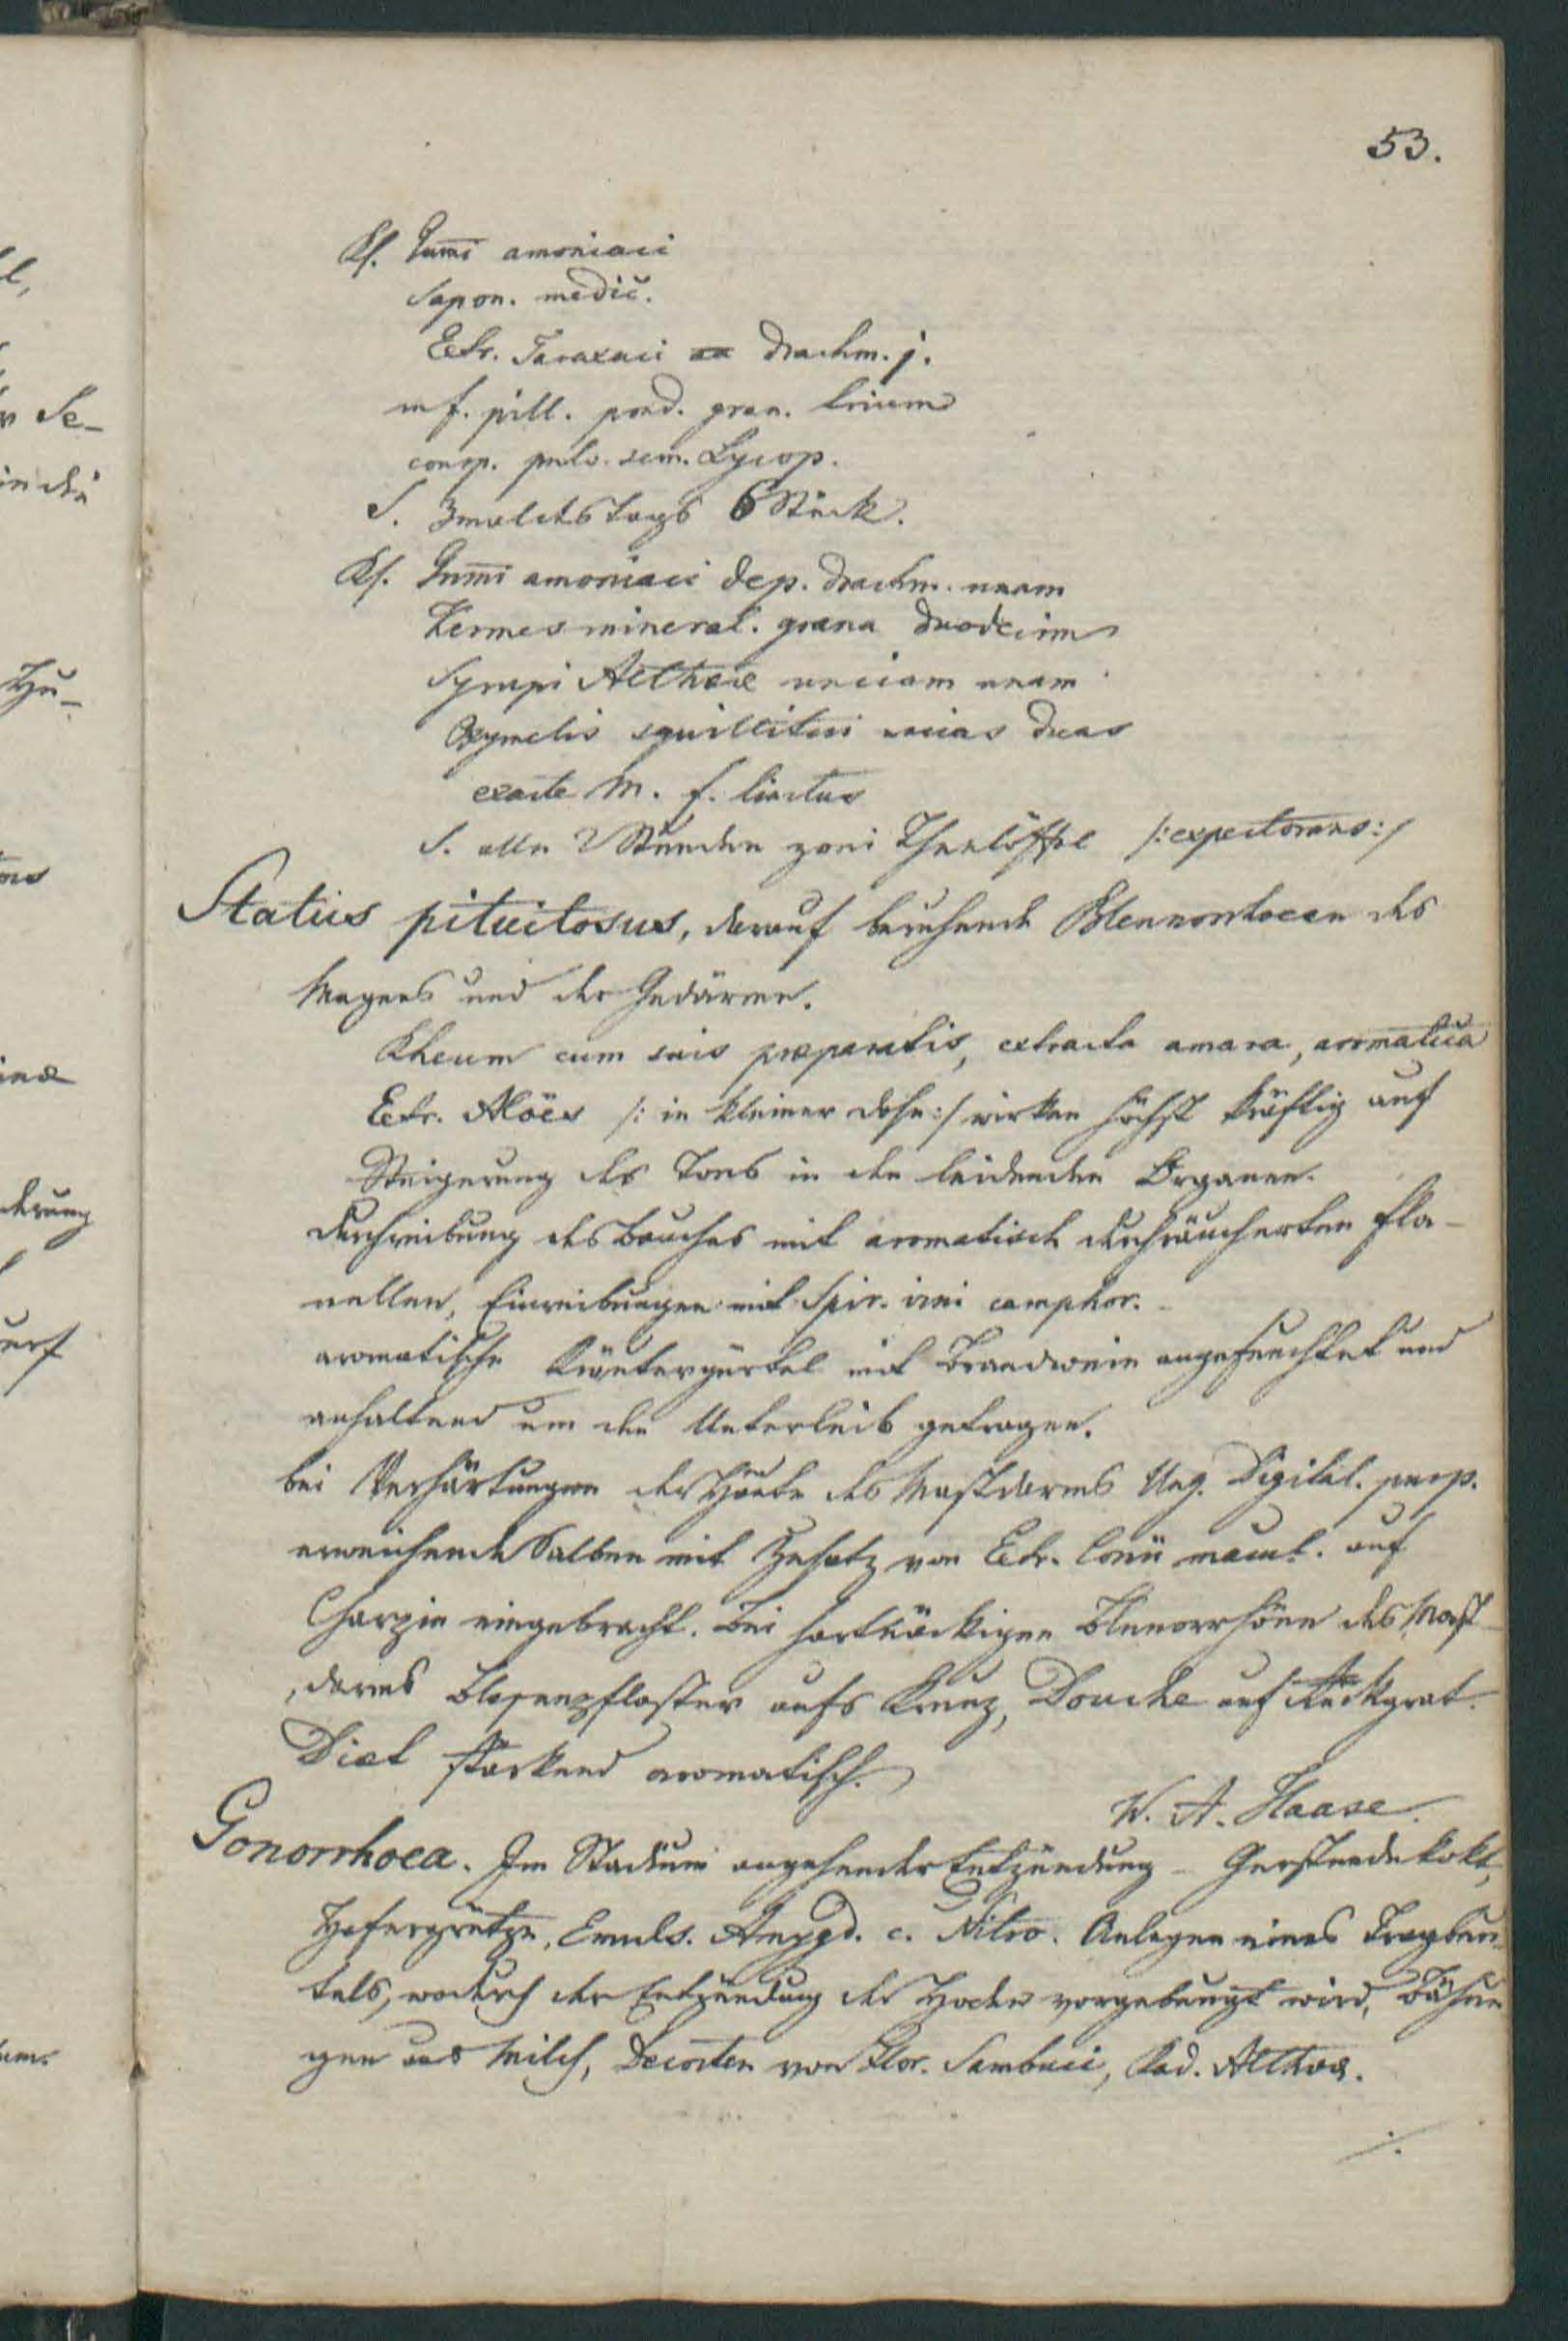 53.
Rf. Gum̄i amoniaci
Sapon. medic.
Extr. Taraxaci aa drachm. j.
m f. pill. pond. gran. trium
consp. pulv. sem. Lycop.
S. 3mal des Tags 6 Stück.
Rf. Gum̄i amoniaci dep. drachm. unam
Kermes mineral. grana duodecim
Syrupi Altheæ unciam unam
Oxymelis squillitici uncias duas
exacte M. f. linctus
S. alle 2 Stunden zwei Theelöffel /:expectorans:/
Status pituitosus, darauf beruhende Blennorrhoeen des
Magens und der Gedärme.
Rheum cum suis præparatis, extracta amara, aromatica
Extr. Aloës /: in kleiner Dose:/ wirken höchst kräftig auf
Steigerung des Tons in den leidenden Organen.
Durchreibung des Bauches mit aromatisch durchräucherten Fla-
nellen, Einreibungen mit Spir. vini camphor.
aromatische Kräutergürtel mit Brandwein angefeuchtet und
anhaltend um den Unterleib getragen.
bei Verhärtungen der Häute des Mastdarms Ung. Digital. purp.
erweichende Salben mit Zusatz von Extr. Conii macul. auf
Charpie eingebracht. Bei hartnäckigen Blenorrhöen des Mast-
darms Blasenpflaster aufs Kreuz, Douche auf Rückgrat.
Diet stärkend aromatisch.
W. A. Haase.
Gonorrhoea. Im Stadium angehender Entzündung - Gerstendekokt,
Hafergrütze, Emuls. Amygd. c. Nitro. Anlegen eines Tragbeu-
tels, wodurch der Entzündung der Hoden vorgebeugt wird, Bähun
gen aus Milch, Decocten von Flor. Sambuci, Rad. Altheæ.
./.